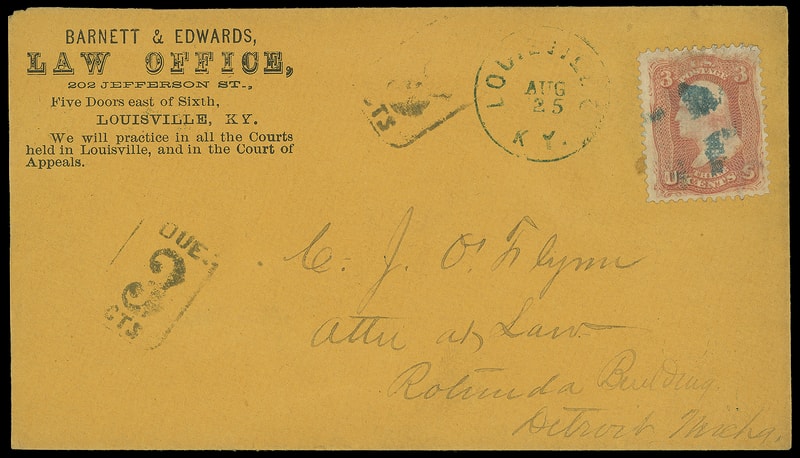 BARNETT & EDWARDS,
LAW OFFICE,
202 JEFFERSON ST.,
Five Doors east of Sixth,
LOUISVILLE, KY.
We will practice in all the Courts
held in Louisville, and in the Court of
Appeals.
CTS
LOUISVILLE
AUG
25
KY.
3 3
THREE
CENTS
U S
DUE
3
CTS
C. J. O'Flynn
Atty at Law
Rotunda Building
Detroit Michg.